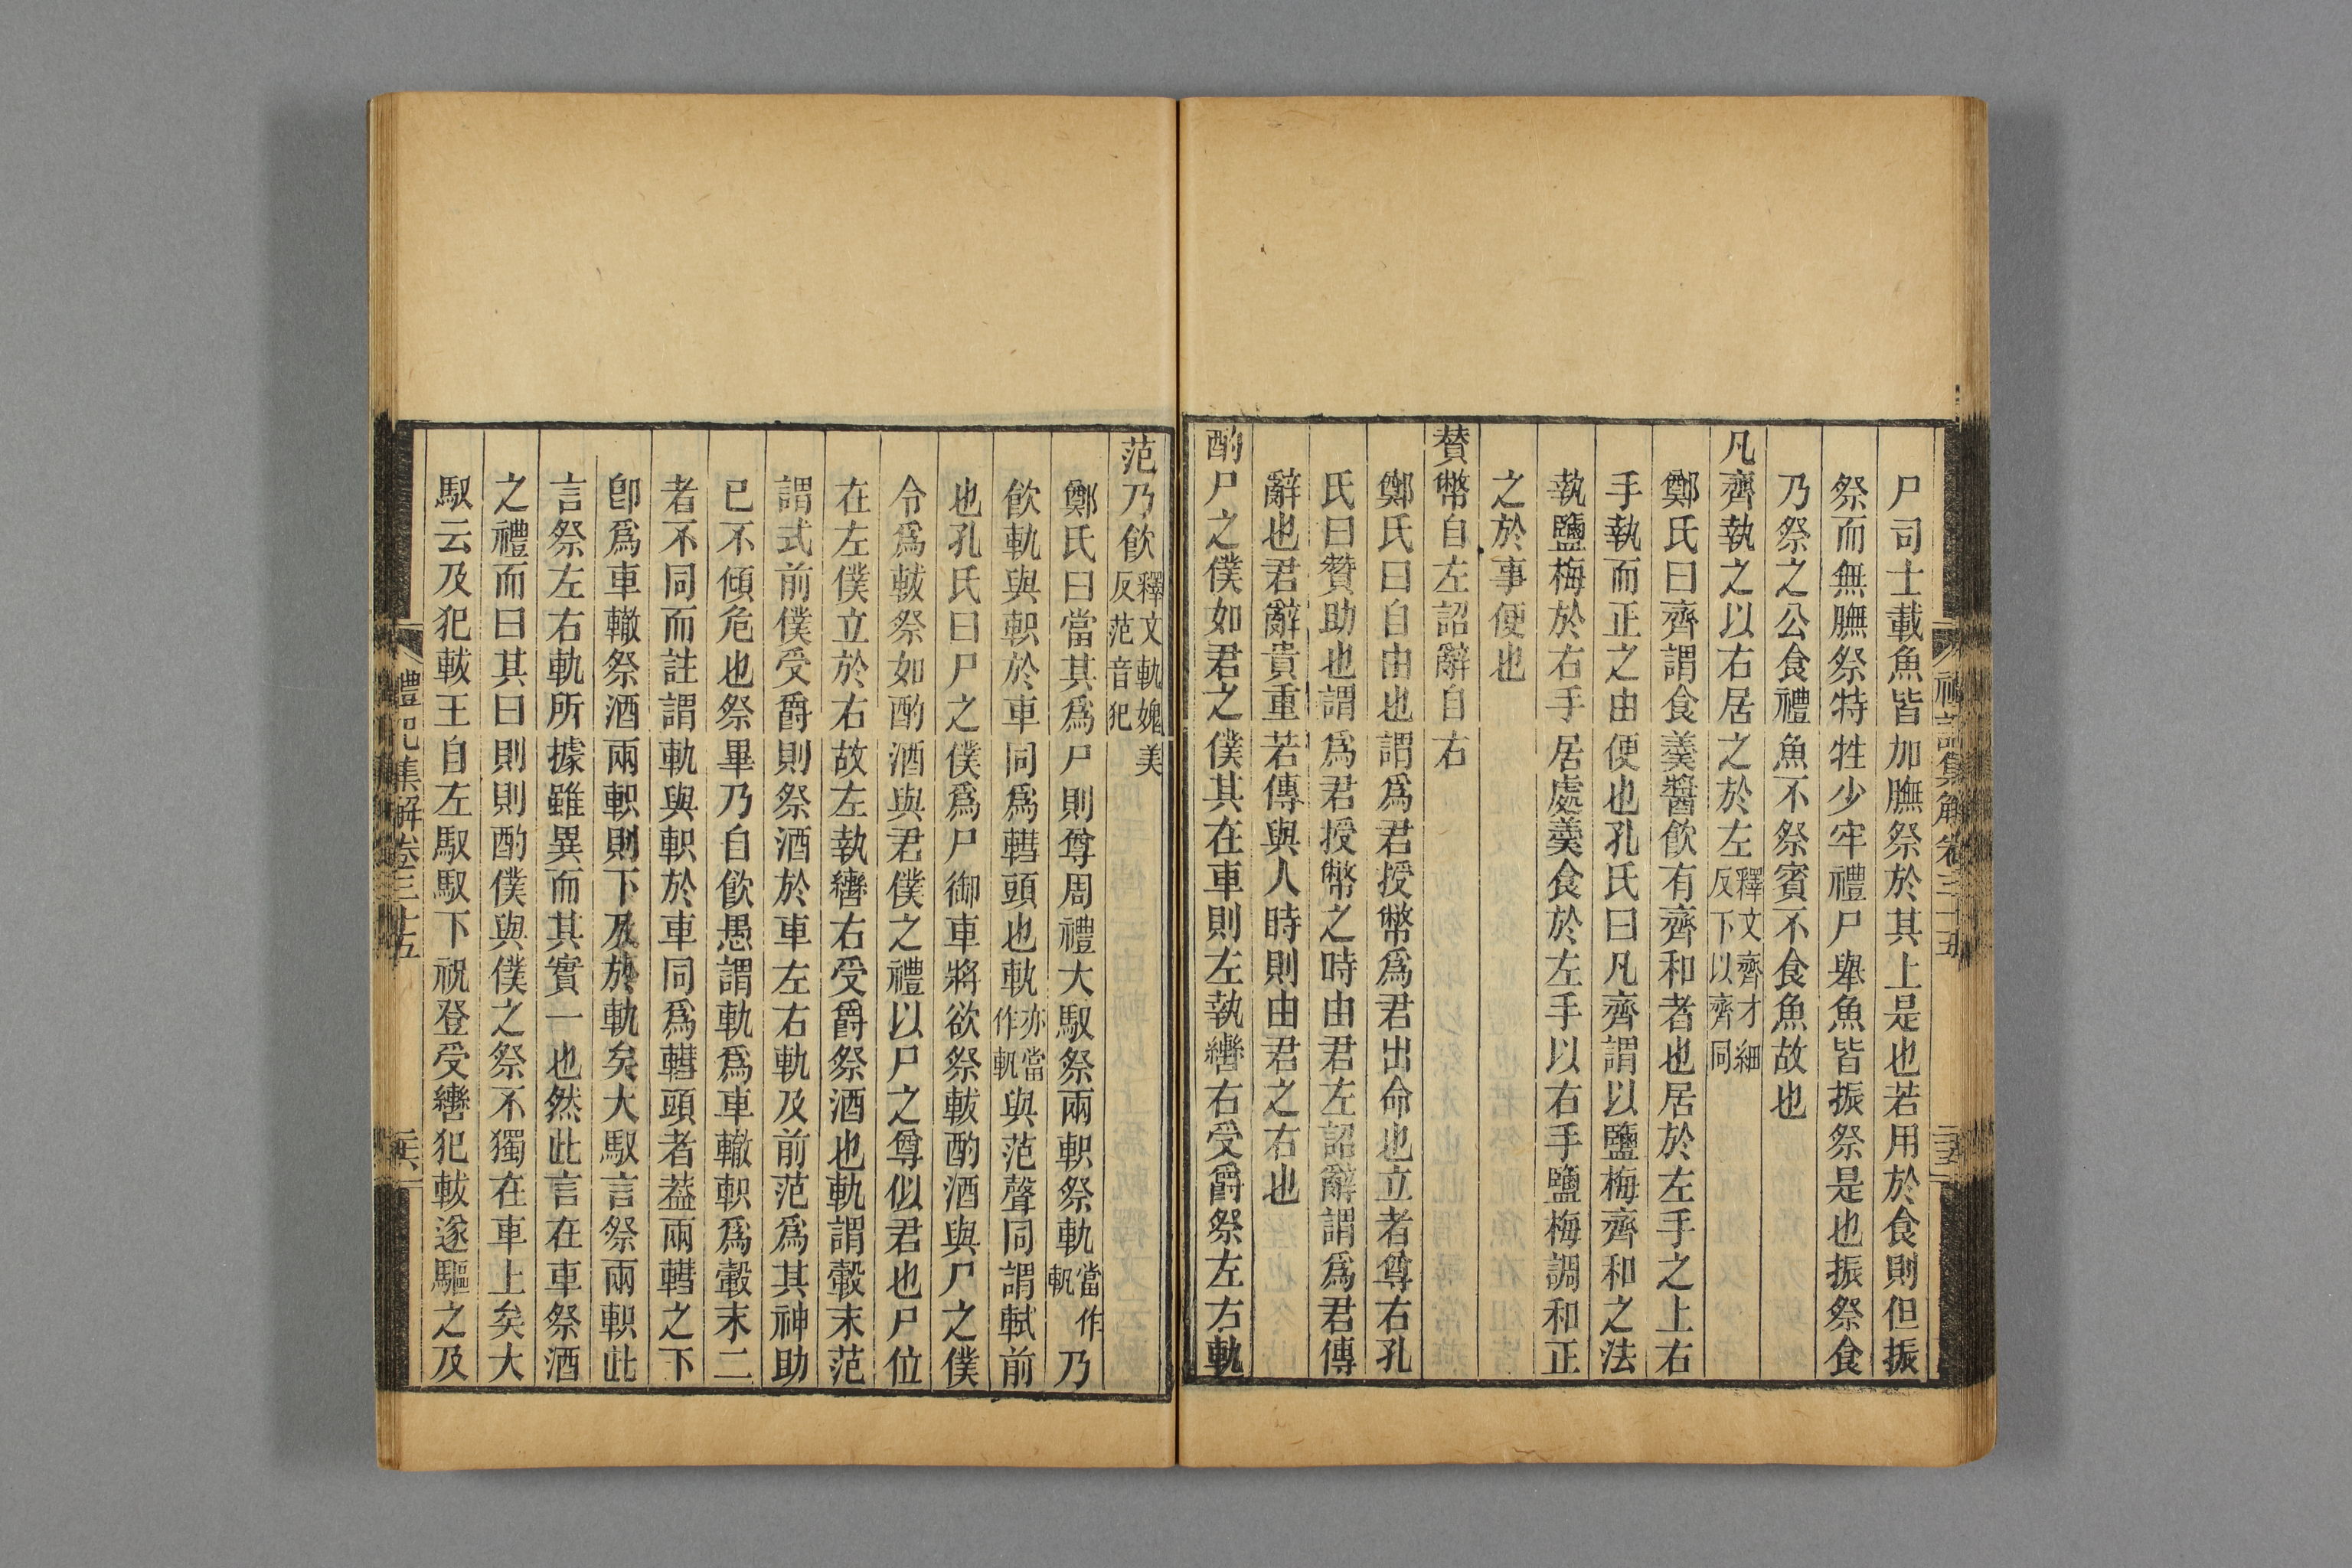 尸司士載魚皆加膴祭於其上是也若用於食則但振
祭而無膴祭特牲少牢禮尸舉魚皆振祭是也振祭食
乃祭之公食禮魚不祭賓不食魚故也
凡齊執之以右居之於左釋文齊才細反下以齊同
鄭氏曰齊謂食羹醬飲有齊和者也居於左手之上右
手執而正之由便也孔氏曰凡齊謂以鹽梅齊和之法
執鹽梅於右手居處羹食於左手以右手鹽梅調和正
之於事便也
贊幣自左詔辭自右
鄭氏曰自由也謂爲君授幣爲君出命也立者尊右孔
氏曰贊助也謂爲君授幣之時由君左詔辭謂爲君傳
辭也君辭貴重若傳與人時則由君之右也
酌尸之僕如君之僕其在車則左執轡右受爵祭左右軌
范乃飲釋文軌媿美反范音犯
鄭氏曰當其爲尸則尊周禮大馭祭兩軹祭軌當作軓乃
飲軌與軹於車同爲轊頭也軌亦當作軓與范聲同謂軾前
也孔氏曰尸之僕爲尸御車將欲祭軷酌酒與尸之僕
令爲軷祭如酌酒與君僕之禮以尸之尊似君也尸位
在左僕立於右故左執轡右受爵祭酒也軌謂轂末范
謂式前僕受爵則祭酒於車左右軌及前范爲其神助
已不傾危也祭畢乃自飲愚謂軌爲車轍軹爲轂末二
者不同而註謂軌與軹於車同爲轊頭者葢兩轊之下
卽爲車轍祭酒兩軹則下及於軌矣大馭言祭兩軹此
言祭左右軌所據雖異而其實一也然此言在車祭酒
之禮而曰其曰則則酌僕與僕之祭不獨在車上矣大
馭云及犯軷王自左馭馭下祝登受轡犯軷遂驅之及
禮記集解卷三十五